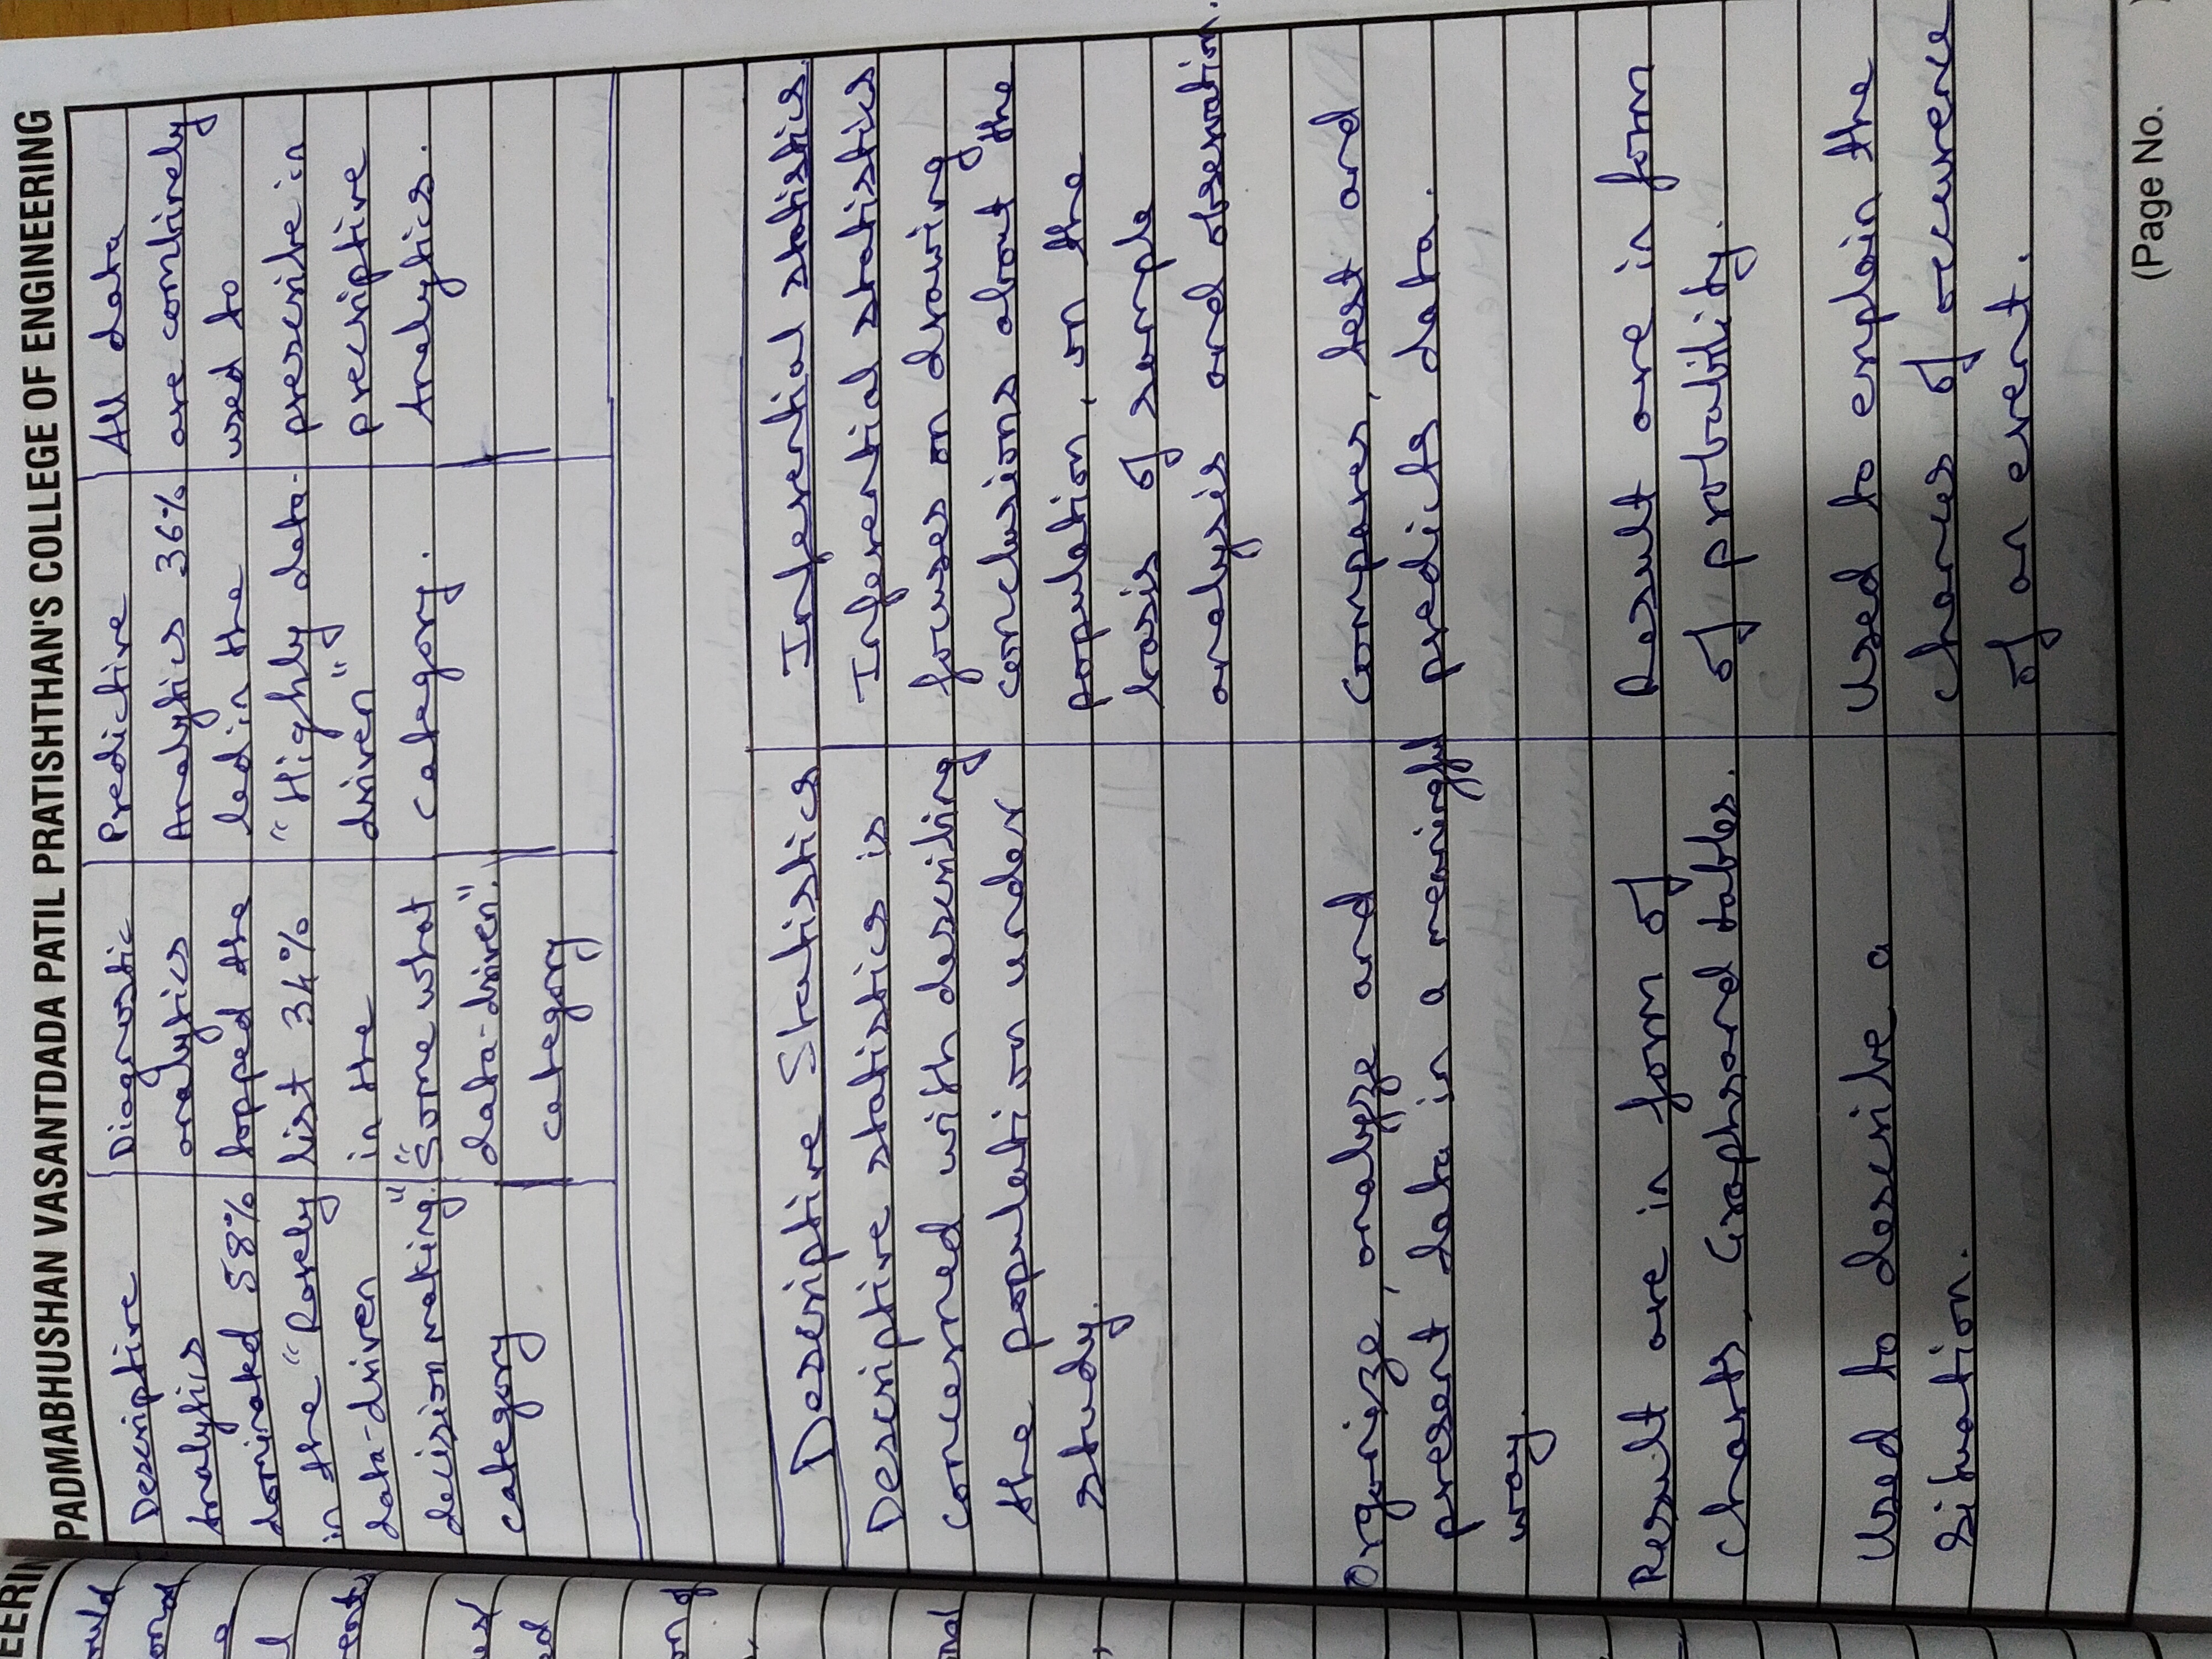 PADMABHUSHAN VASANTDADA PATIL PRATISHTHAN'S COLLEGE OF ENGINEERING
Descriptive
Analytics
dominated 58%
in the "Rarely
data-driven
decision making."
category
Diagnostic
analytics
topped the
list 34%
in the
"Some what
data-driven".
category
Predictive
Analytics 36%
led in the
"Highly data-
driven"
category.
All data
are combinely
used to
prescribe in
precriptive
Analytics.
Descriptive Statistics
Inferential statistics.
Descriptive statistics is
concerned with describing
the population under
study.
Inferential statistics
focuses on drawing
conclusions about the
population, on the
basis of sample
analysis and observation.
Organize, analyze and
present data in a meaningful
way.
Compares, test and
predicts data.
Result are in form of
charts, Graphs and tables.
Result are in form
of probability.
Used to describe a
situation.
Used to explain the
chances of occurence
of an event.
(Page No.
EERIN
ould
l
ed
on of
nal